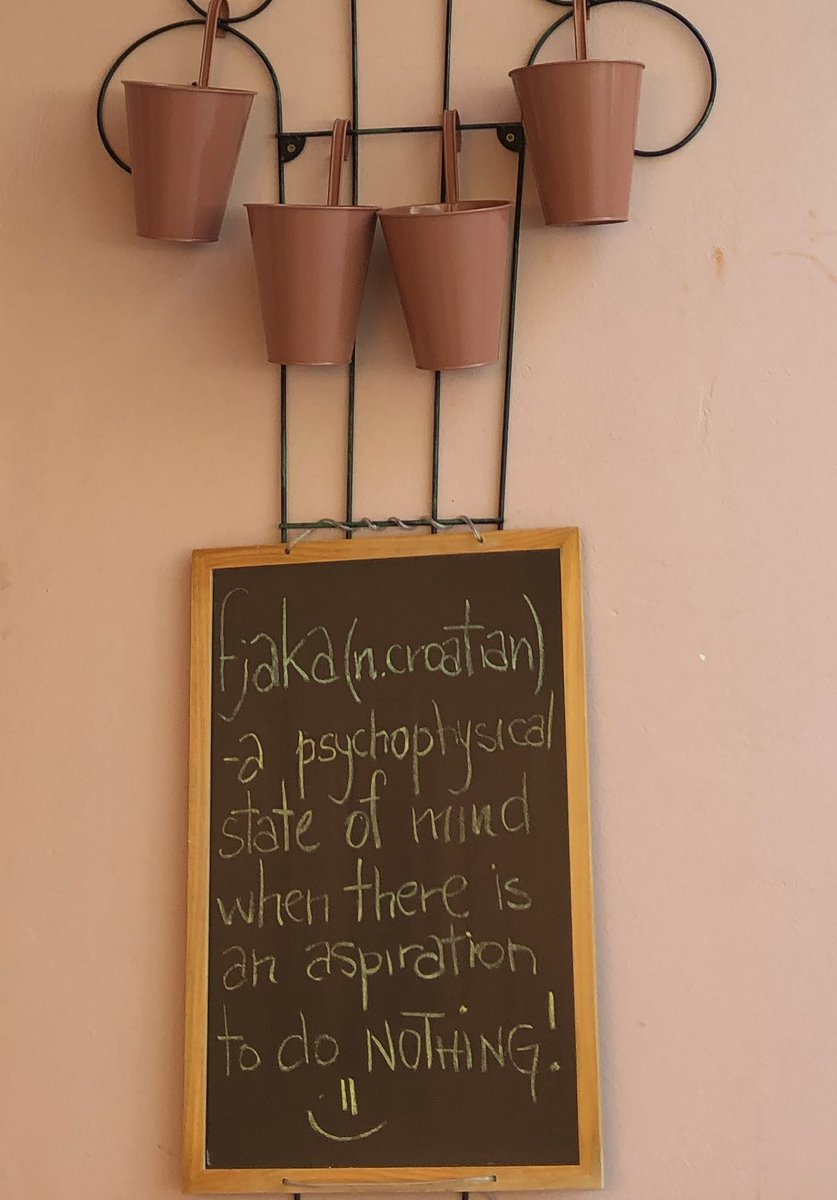 fjaka (n. croatian)
- a psychophysical
state of mind
when there is
an aspiration
to do NOTHING!